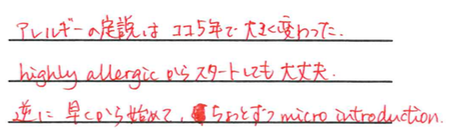 アレルギーの定説はココ5年で大きく変わった.
highly allergicからスタートしても大丈夫.
逆に早くから始めて,ちょっとずつmicro introduction.